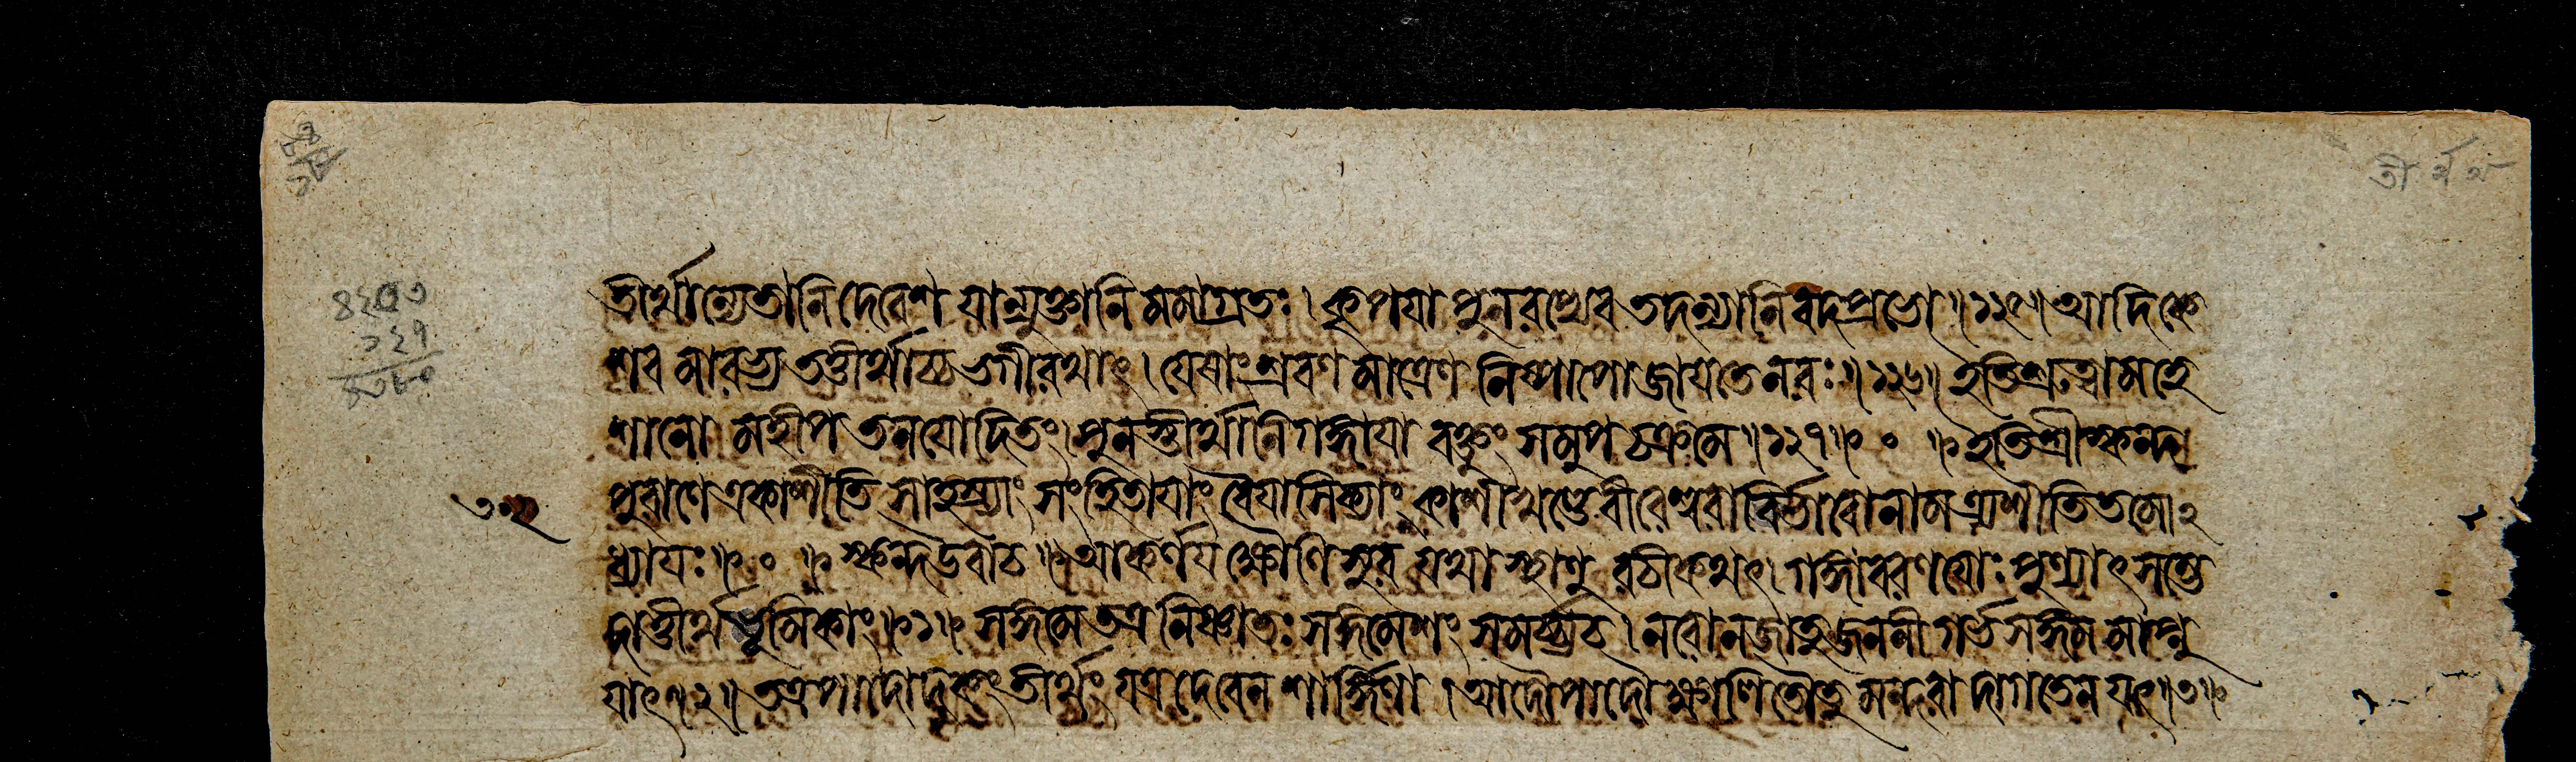 তীর্থান্যেতানি দেবেশ যান্যুক্তানি মমাগ্রতঃ। কৃপযা পুনরপ্যেব তদন্যানি বদপ্রভো॥১২৫॥আদিকে
শব মারভ্য তত্তীর্থাষ্ঠ ভগীরথাৎ। যেষাং শ্রবণ মাত্রেণ নিষ্পাপো জাযতে নরঃ॥১২৬॥ ইতিশ্রুত্বা মহে
শানো মহীপ তনযোদিতং। পুনস্তীর্থানিগঙ্গাযা বক্তুং সমুপ চক্রমে॥১২৭॥ ० ॥ইতিশ্রীস্কন্দ
পুরাণে একাশীতি সাহস্র্যাং সংহিতাযাং বৈযাসিক্যাং কাশীখণ্ডে বীরেশ্বরাবির্ভাবোনাম ত্র্যশীতিতমোঽ
ধ্যাযঃ॥ ० ॥স্কন্দউবাচ॥আকর্ণয ক্ষৌণিসুর যথাস্থাণু রচীকথৎ। গঙ্গাবরণযোঃ পুণ্যাৎ সম্ভে
দাত্তীর্থভূমিকাং॥১॥ সঙ্গমে তত্র নিষ্ণাতঃ সঙ্গমেশং সমর্চ্চ্যচ। নরোনজাতু জননী গর্ভসঙ্গম মাপ্নু
যাৎ॥২॥ তত্র পাদোদকং তীর্থং যত্র দেবেন শার্ঙ্গিণা। আদৌপাদৌ ক্ষালিতৌতু মন্দরা দাগতেন যৎ॥৩॥